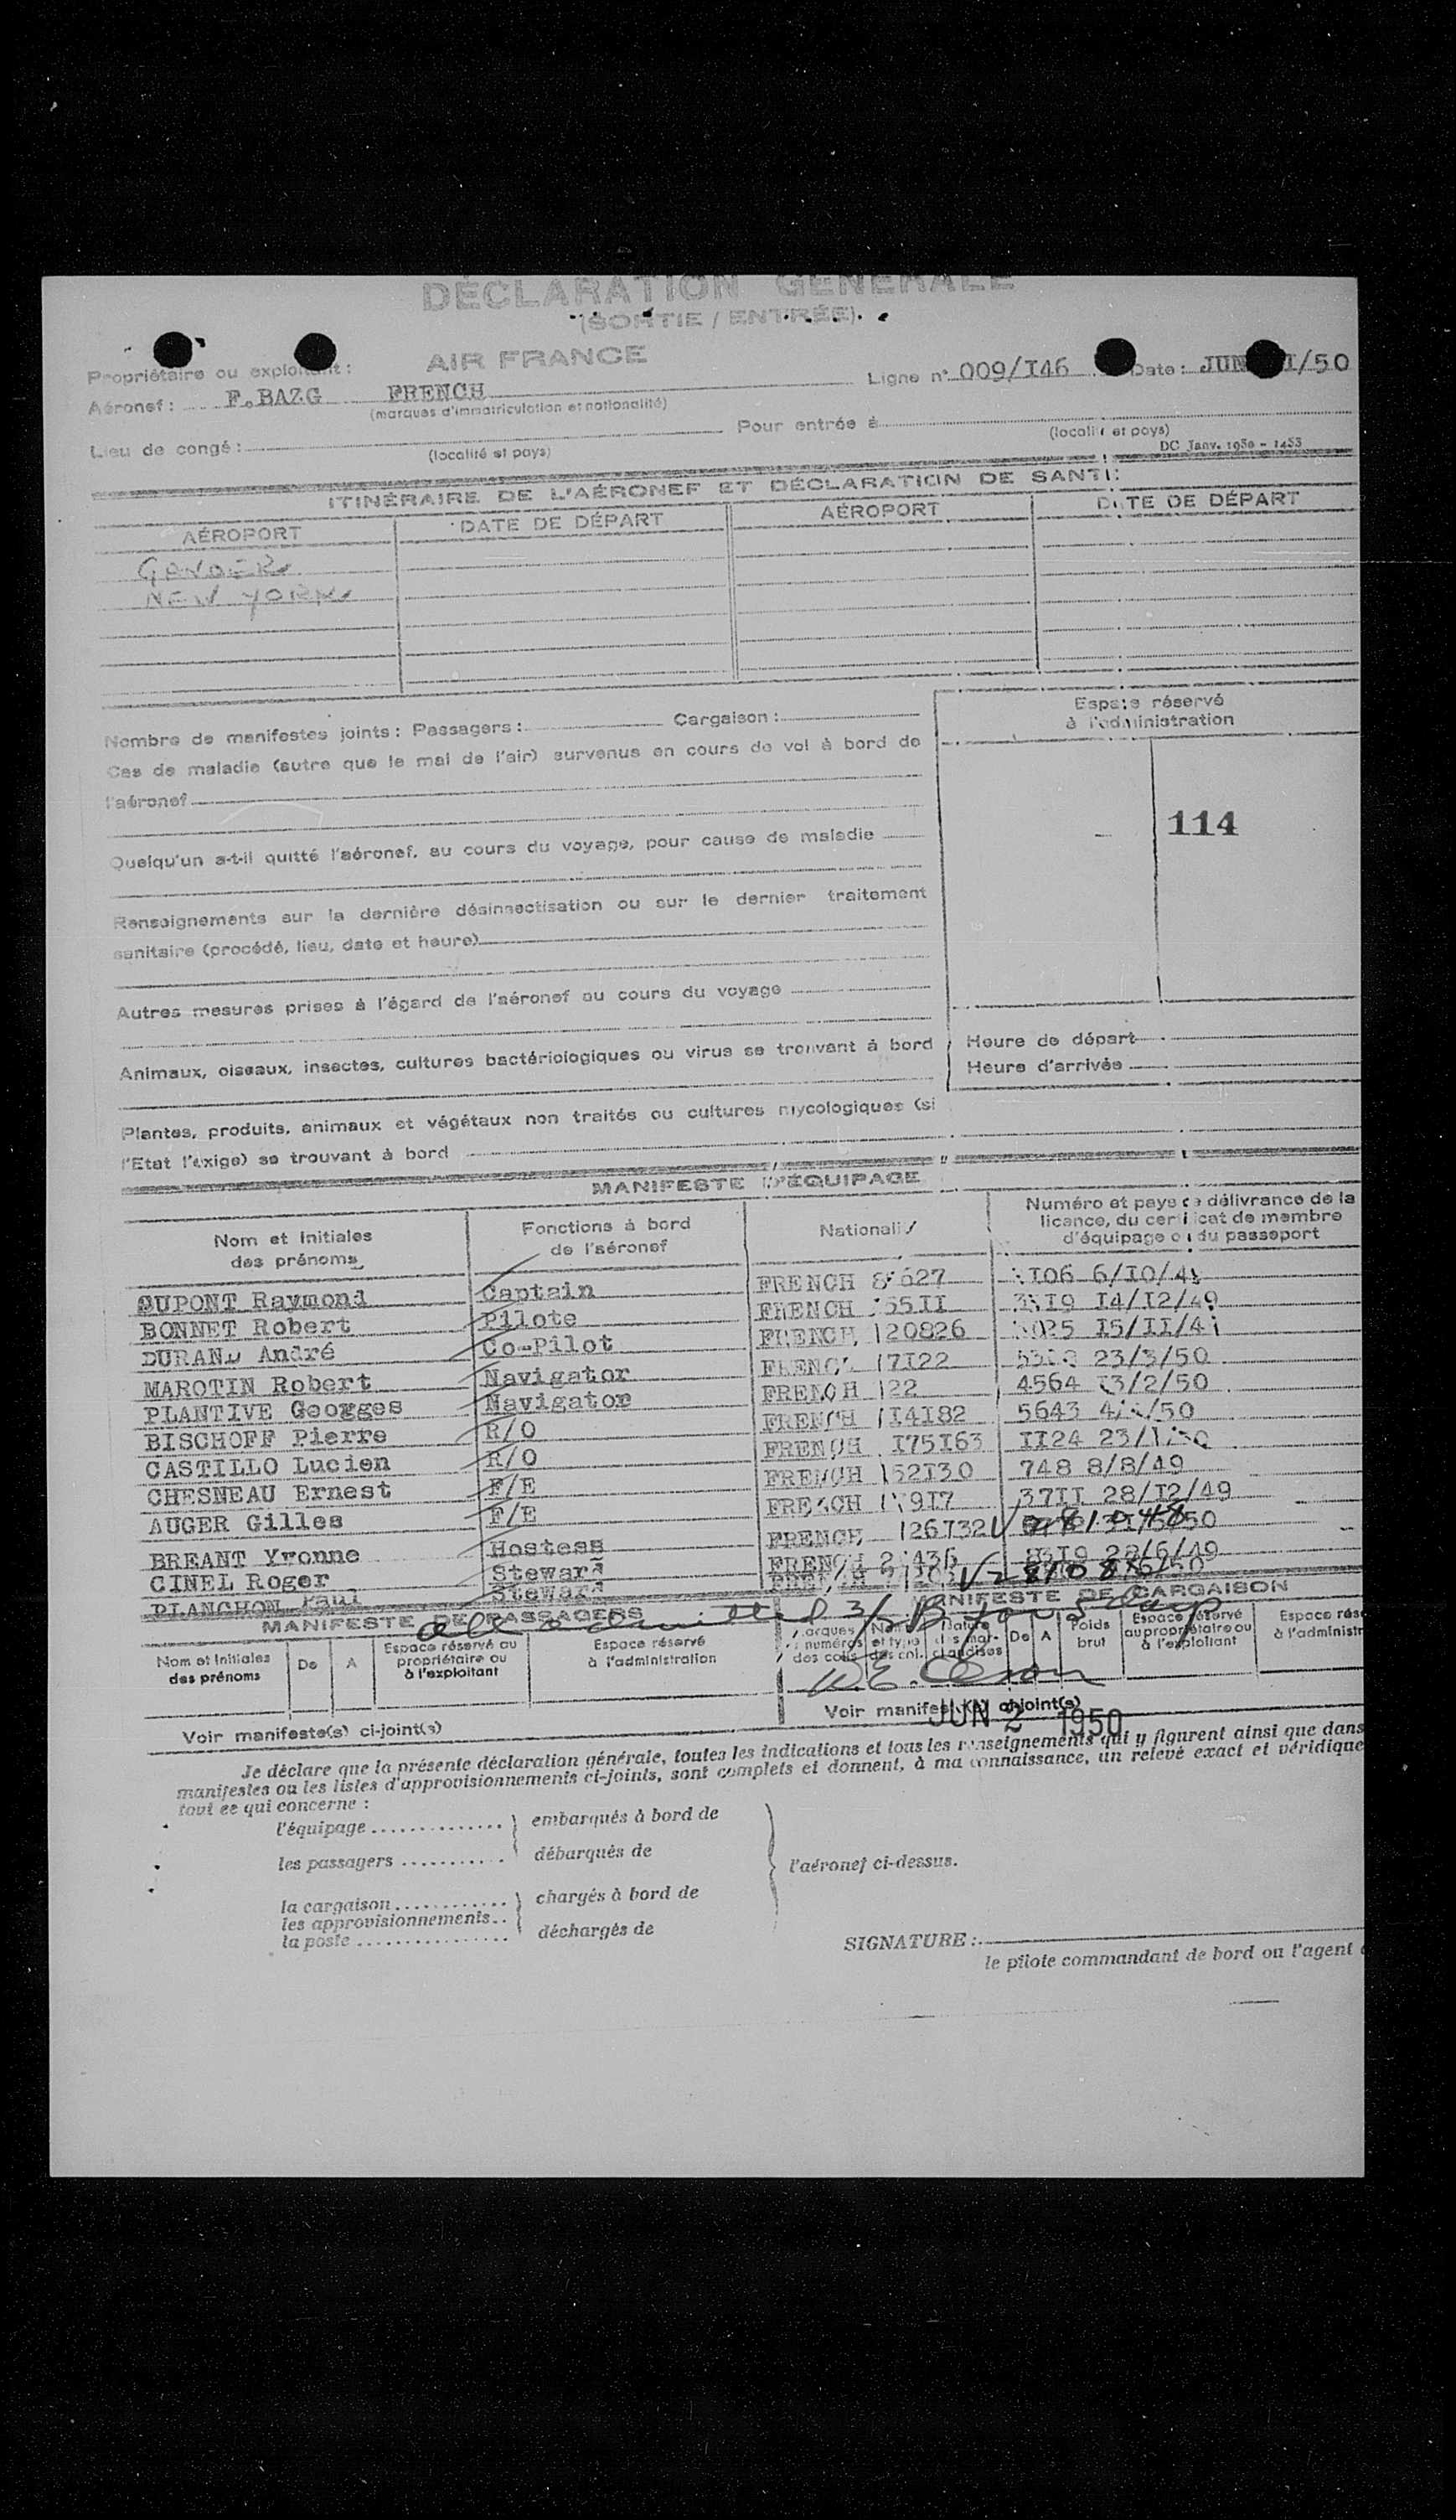 DÉCLARATION GÉNÉRALE
(SORTIE / ENTRÉE)
Propriétaire ou exploitant : AIR FRANCE Ligne n° 009/I46 Date : JUN I/50
Aéronef : F.BAZG FRENCH
(marques d'immatriculation et nationalité)
Lieu de congé : Pour entrée à
(localité et pays) (localité et pays)
DC Janv. 1950 - 1453
ITINÉRAIRE DE L'AÉRONEF ET DÉCLARATION DE SANTÉ
AÉROPORT DATE DE DÉPART AÉROPORT DATE DE DÉPART
GANDER
NEW YORK
Nombre de manifestes joints : Passagers : Cargaison :
Espace réservé
à l'administration
Cas de maladie (autre que le mal de l'air) survenus en cours de vol à bord de
l'aéronef
114
Quelqu'un a-t-il quitté l'aéronef, au cours du voyage, pour cause de maladie
Renseignements sur la dernière désinsectisation ou sur le dernier traitement
sanitaire (procédé, lieu, date et heure)
Autres mesures prises à l'égard de l'aéronef au cours du voyage
Animaux, oiseaux, insectes, cultures bactériologiques ou virus se trouvant à bord
Heure de départ
Heure d'arrivée
Plantes, produits, animaux et végétaux non traités ou cultures mycologiques (si
l'Etat l'exige) se trouvant à bord
MANIFESTE D'ÉQUIPAGE
Nom et Initiales des prénoms Fonctions à bord de l'aéronef Nationalité Numéro et pays de délivrance de la licence, du certificat de membre d'équipage ou du passeport
DUPONT Raymond Captain FRENCH 6/I0/4
BONNET Robert Pilote FRENCH I4/I2/49
DURAND André Co-Pilot FRENCH 120826 I5/II/4
MAROTIN Robert Navigator FRENCH 17I22 23/3/50
PLANTIVE Georges Navigator FRENCH 122 4564 I3/2/50
BISCHOFF Pierre R/O FRENCH 1I4I82 5643
CASTILLO Lucien R/O FRENCH I75I63 II24
CHESNEAU Ernest F/E FRENCH 152I30 748 8/8/49
AUGER Gilles F/E FRENCH 37II 28/I2/49
BREANT Yvonne Hostess FRENCH 126732
CINEL Roger Steward FRENCH 28/6/49
PLANCHON Paul Steward FRENCH
MANIFESTE DE PASSAGERS MANIFESTE DE CARGAISON
all admitted 3/2 B for days
Nom et Initiales des prénoms De A Espace réservé au propriétaire ou à l'exploitant Espace réservé à l'administration
Marques et numéros des colis Nature des marchandises De A Poids brut Espace réservé au propriétaire ou à l'exploitant Espace rése à l'administr
Voir manifeste(s) ci-joint(s) Voir manifeste(s) ci-joint(s)
JUN 2 1950
Je déclare que la présente déclaration générale, toutes les indications et tous les renseignements qui y figurent ainsi que dans
manifestes ou les listes d'approvisionnements ci-joints, sont complets et donnent, à ma connaissance, un relevé exact et véridique
tout ce qui concerne :
l'équipage .............. embarqués à bord de
les passagers ........... débarqués de
l'aéronef ci-dessus.
la cargaison ............ chargés à bord de
les approvisionnements..
la poste ................ déchargés de
SIGNATURE :
le pilote commandant de bord ou l'agent